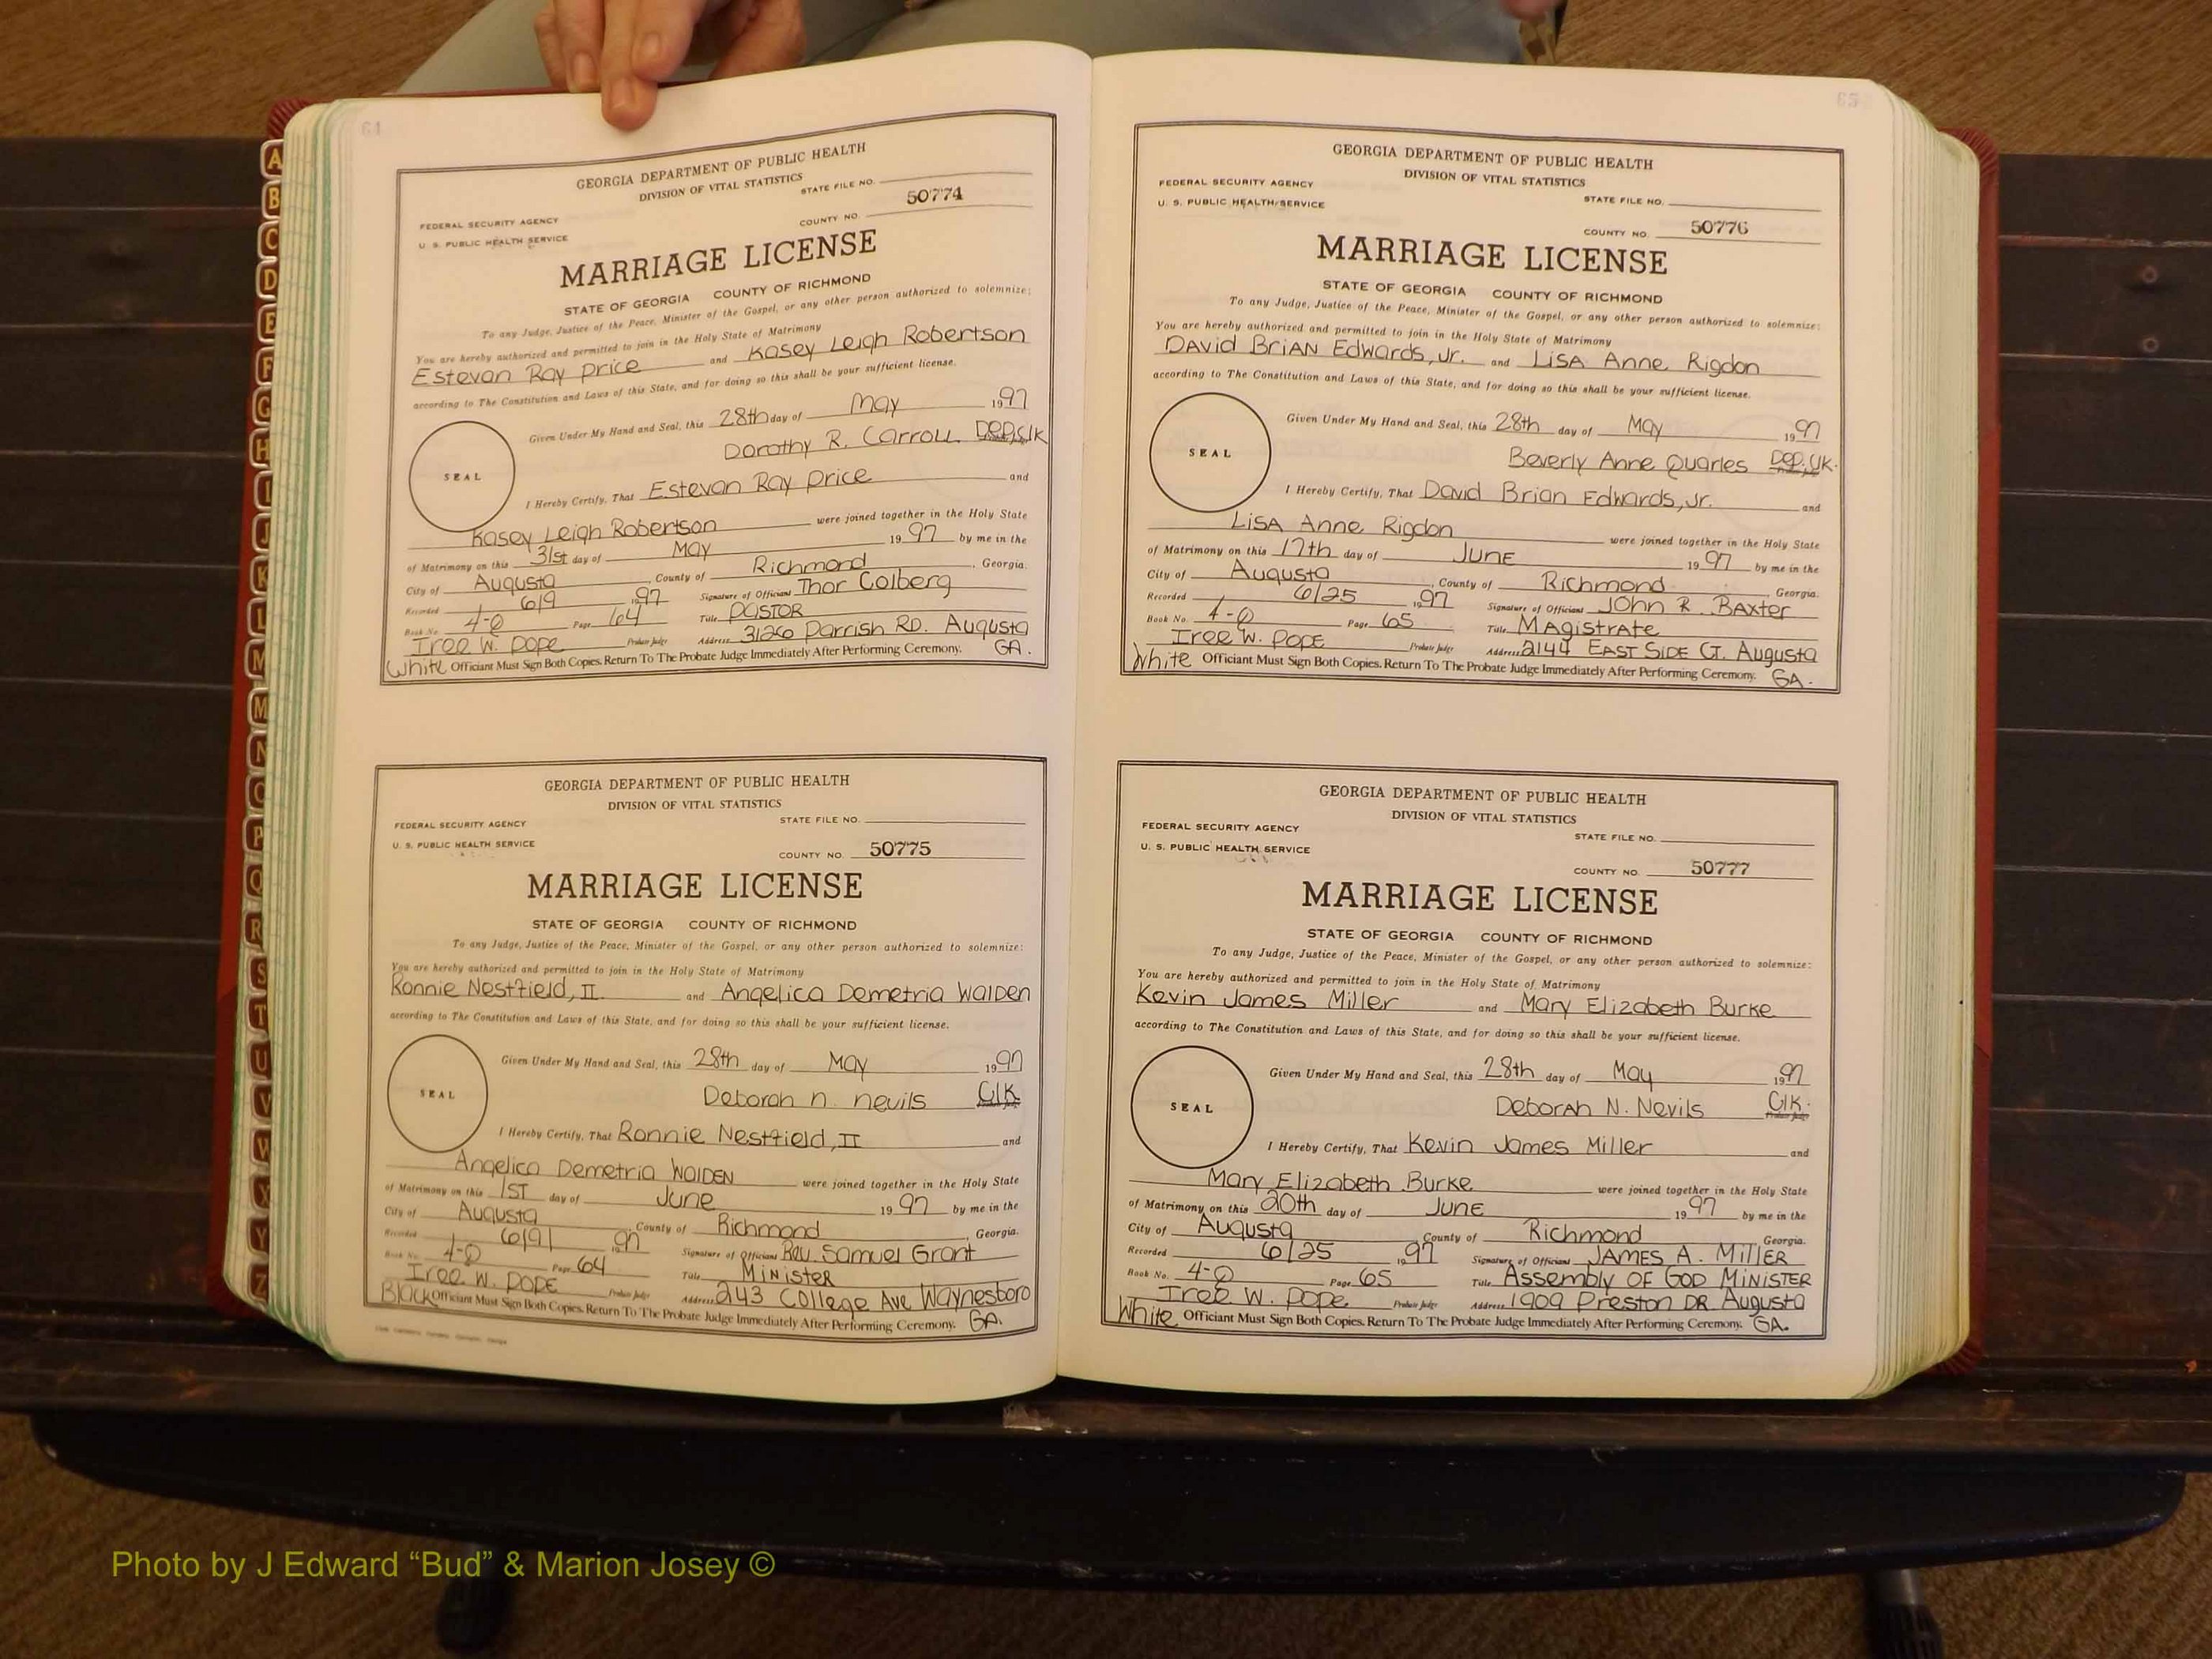 64
GEORGIA DEPARTMENT OF PUBLIC HEALTH
DIVISION OF VITAL STATISTICS
STATE FILE NO.
FEDERAL SECURITY AGENCY
U. S. PUBLIC HEALTH SERVICE
COUNTY NO. 50774
MARRIAGE LICENSE
STATE OF GEORGIA COUNTY OF RICHMOND
To any Judge, Justice of the Peace, Minister of the Gospel, or any other person authorized to solemnize:
You are hereby authorized and permitted to join in the Holy State of Matrimony
Estevan Ray Price and Kasey Leigh Robertson
according to The Constitution and Laws of this State, and for doing so this shall be your sufficient license.
Given Under My Hand and Seal, this 28th day of May 1997
Dorothy R. Carroll Dep. Clk
SEAL
I Hereby Certify, That Estevan Ray Price and
Kasey Leigh Robertson were joined together in the Holy State
of Matrimony on this 31st day of May 1997 by me in the
City of Augusta, County of Richmond, Georgia.
Recorded 6/9 1997 Signature of Officiant Thor Colberg
Book No. 4-Q Page 64 Title PASTOR
Iree W. Pope Probate Judge Address 3126 Parrish RD. Augusta
White Officiant Must Sign Both Copies. Return To The Probate Judge Immediately After Performing Ceremony. GA.
GEORGIA DEPARTMENT OF PUBLIC HEALTH
DIVISION OF VITAL STATISTICS
STATE FILE NO.
FEDERAL SECURITY AGENCY
U. S. PUBLIC HEALTH SERVICE
COUNTY NO. 50775
MARRIAGE LICENSE
STATE OF GEORGIA COUNTY OF RICHMOND
To any Judge, Justice of the Peace, Minister of the Gospel, or any other person authorized to solemnize:
You are hereby authorized and permitted to join in the Holy State of Matrimony
Ronnie Nestfield, II and Angelica Demetria Walden
according to The Constitution and Laws of this State, and for doing so this shall be your sufficient license.
Given Under My Hand and Seal, this 28th day of May 1997
Deborah N. Nevils Clk
SEAL
I Hereby Certify, That Ronnie Nestfield, II and
Angelica Demetria Walden were joined together in the Holy State
of Matrimony on this 1st day of June 1997 by me in the
City of Augusta, County of Richmond, Georgia.
Recorded 6/9/ 1997 Signature of Officiant Rev. Samuel Grant
Book No. 4-Q Page 64 Title Minister
Iree W. Pope Probate Judge Address 243 College Ave Waynesboro
Black Officiant Must Sign Both Copies. Return To The Probate Judge Immediately After Performing Ceremony. GA.
65
GEORGIA DEPARTMENT OF PUBLIC HEALTH
DIVISION OF VITAL STATISTICS
FEDERAL SECURITY AGENCY
U. S. PUBLIC HEALTH SERVICE
STATE FILE NO.
COUNTY NO. 50776
MARRIAGE LICENSE
STATE OF GEORGIA COUNTY OF RICHMOND
To any Judge, Justice of the Peace, Minister of the Gospel, or any other person authorized to solemnize:
You are hereby authorized and permitted to join in the Holy State of Matrimony
David Brian Edwards, Jr. and Lisa Anne Rigdon
according to The Constitution and Laws of this State, and for doing so this shall be your sufficient license.
Given Under My Hand and Seal, this 28th day of May 1997
Beverly Anne Quarles Dep. Clk.
SEAL
I Hereby Certify, That David Brian Edwards, Jr. and
Lisa Anne Rigdon were joined together in the Holy State
of Matrimony on this 17th day of June 1997 by me in the
City of Augusta, County of Richmond, Georgia.
Recorded 6/25 1997 Signature of Officiant John R. Baxter
Book No. 4-Q Page 65 Title Magistrate
Iree W. Pope Probate Judge Address 2144 East Side Ct. Augusta
White Officiant Must Sign Both Copies. Return To The Probate Judge Immediately After Performing Ceremony. GA.
GEORGIA DEPARTMENT OF PUBLIC HEALTH
DIVISION OF VITAL STATISTICS
FEDERAL SECURITY AGENCY
U. S. PUBLIC HEALTH SERVICE
STATE FILE NO.
COUNTY NO. 50777
MARRIAGE LICENSE
STATE OF GEORGIA COUNTY OF RICHMOND
To any Judge, Justice of the Peace, Minister of the Gospel, or any other person authorized to solemnize:
You are hereby authorized and permitted to join in the Holy State of Matrimony
Kevin James Miller and Mary Elizabeth Burke
according to The Constitution and Laws of this State, and for doing so this shall be your sufficient license.
Given Under My Hand and Seal, this 28th day of May 1997
Deborah N. Nevils Clk.
SEAL
I Hereby Certify, That Kevin James Miller and
Mary Elizabeth Burke were joined together in the Holy State
of Matrimony on this 20th day of June 1997 by me in the
City of Augusta, County of Richmond, Georgia.
Recorded 6/25 1997 Signature of Officiant James A. Miller
Book No. 4-Q Page 65 Title Assembly of God Minister
Iree W. Pope Probate Judge Address 1909 Preston DR Augusta
White Officiant Must Sign Both Copies. Return To The Probate Judge Immediately After Performing Ceremony. GA.
A
B
C
D
E
F
G
H
I
J
K
L
M
M
N
O
P
Q
R
S
T
U
V
W
X
Y
Z
Photo by J Edward “Bud” & Marion Josey ©